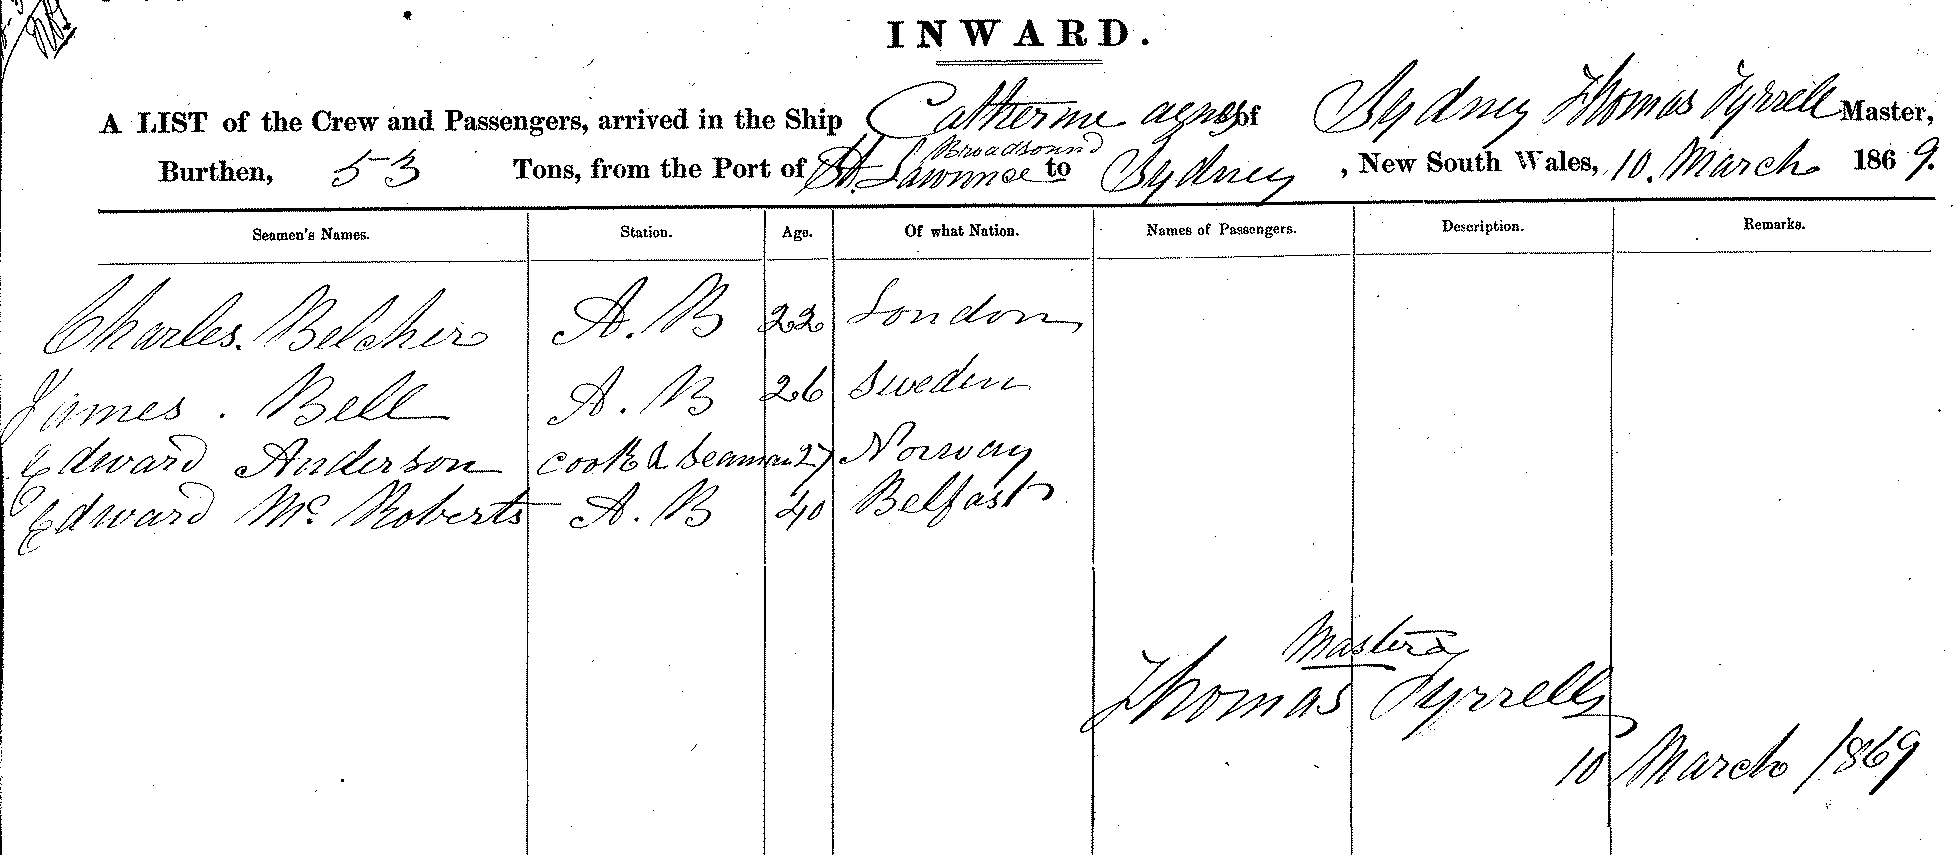 INWARD.
A LIST of the Crew and Passengers, arrived in the Ship Catherine Agnes of Sydney Thomas Tyrrell Master,
Broadsound
Burthen, 53 Tons, from the Port of St. Lawrence to Sydney, New South Wales, 10. March 1869.
Seamen's Names. Station. Age. Of what Nation. Names of Passengers. Description. Remarks.
Charles. Belcher A. B 22 London
James. Bell A. B 26 Sweden
Edward Anderson cook & Seaman 27 Norway
Edward Mc Roberts A. B 40 Belfast
Master
Thomas Tyrrell
10 March 1869